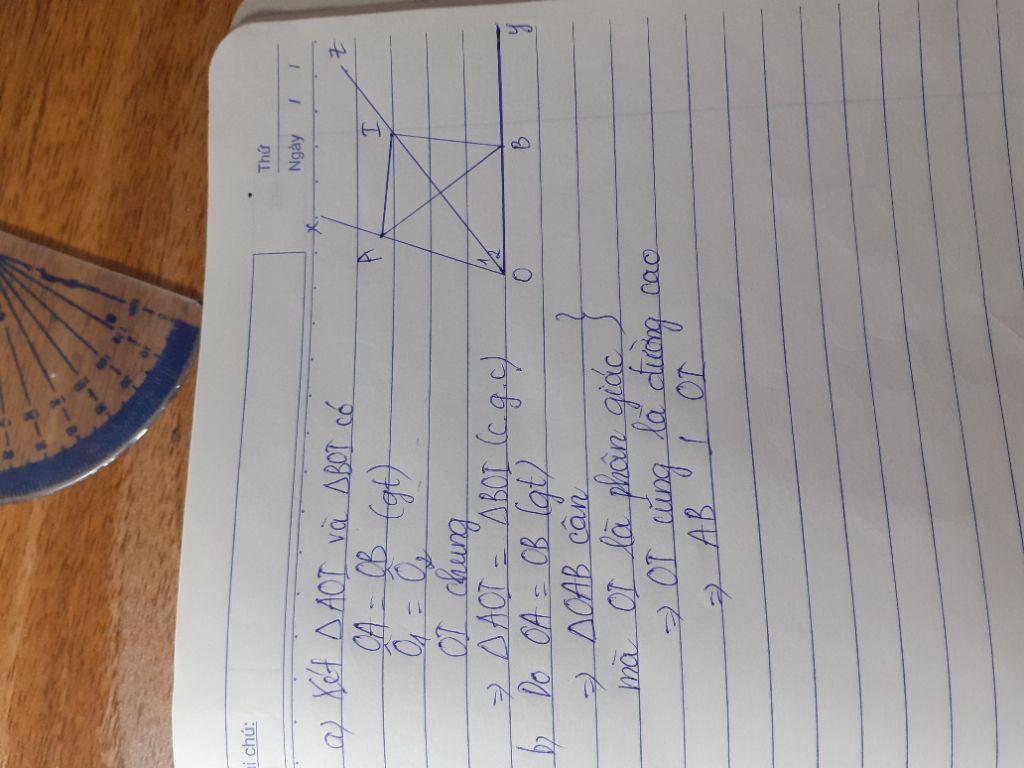 i chú:
Thứ
Ngày / /
x
A
I
z
1
2
O
B
y
a) Xét Δ AOI và Δ BOI có
OA = OB (gt)
Ô1 = Ô2
OI chung
=> Δ AOI = Δ BOI (c.g.c)
b) Do OA = OB (gt)
=> Δ OAB cân
mà OI là phân giác }
=> OI cũng là đường cao
=> AB ⊥ OI